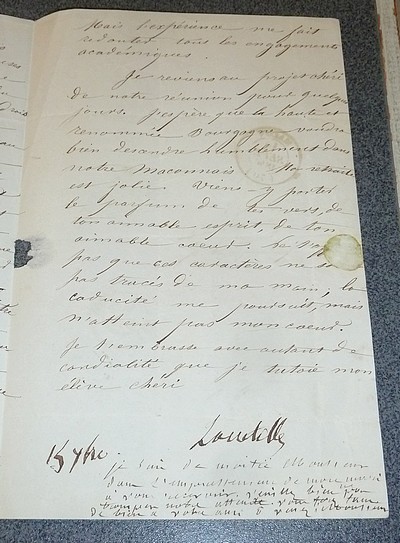 Mais l'expérience me fait
redouter tous les engagements
académiques.
Je reviens au projet chéri
de notre réunion pour quelques
jours. J'espère que la haute et
renommée Bourgogne voudra
bien descendre humblement dans
notre Maconnais. Ma retraite
est jolie. Viens-y porter
le parfum de tes vers, de
ton aimable esprit, de ton
aimable coeur. Je
pas que ces caractères ne
pas tracés de ma main; la
caducité me poursuit, mais
n'atteint pas mon coeur.
Je t'embrasse avec autant de
cordialité que je tutoie mon
élève chéri
15 7bre
je suis de moitié Monsieur
dans l'empressement de mon mari
à vous recevoir, veuillez bien
tromper notre attente